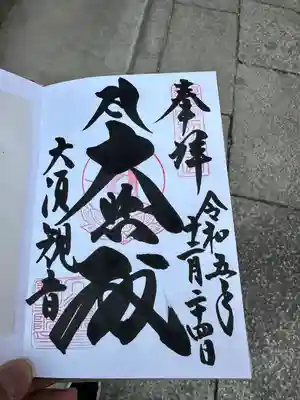 奉拝
令和五年
十一月二十四日
大悲殿
大須観音